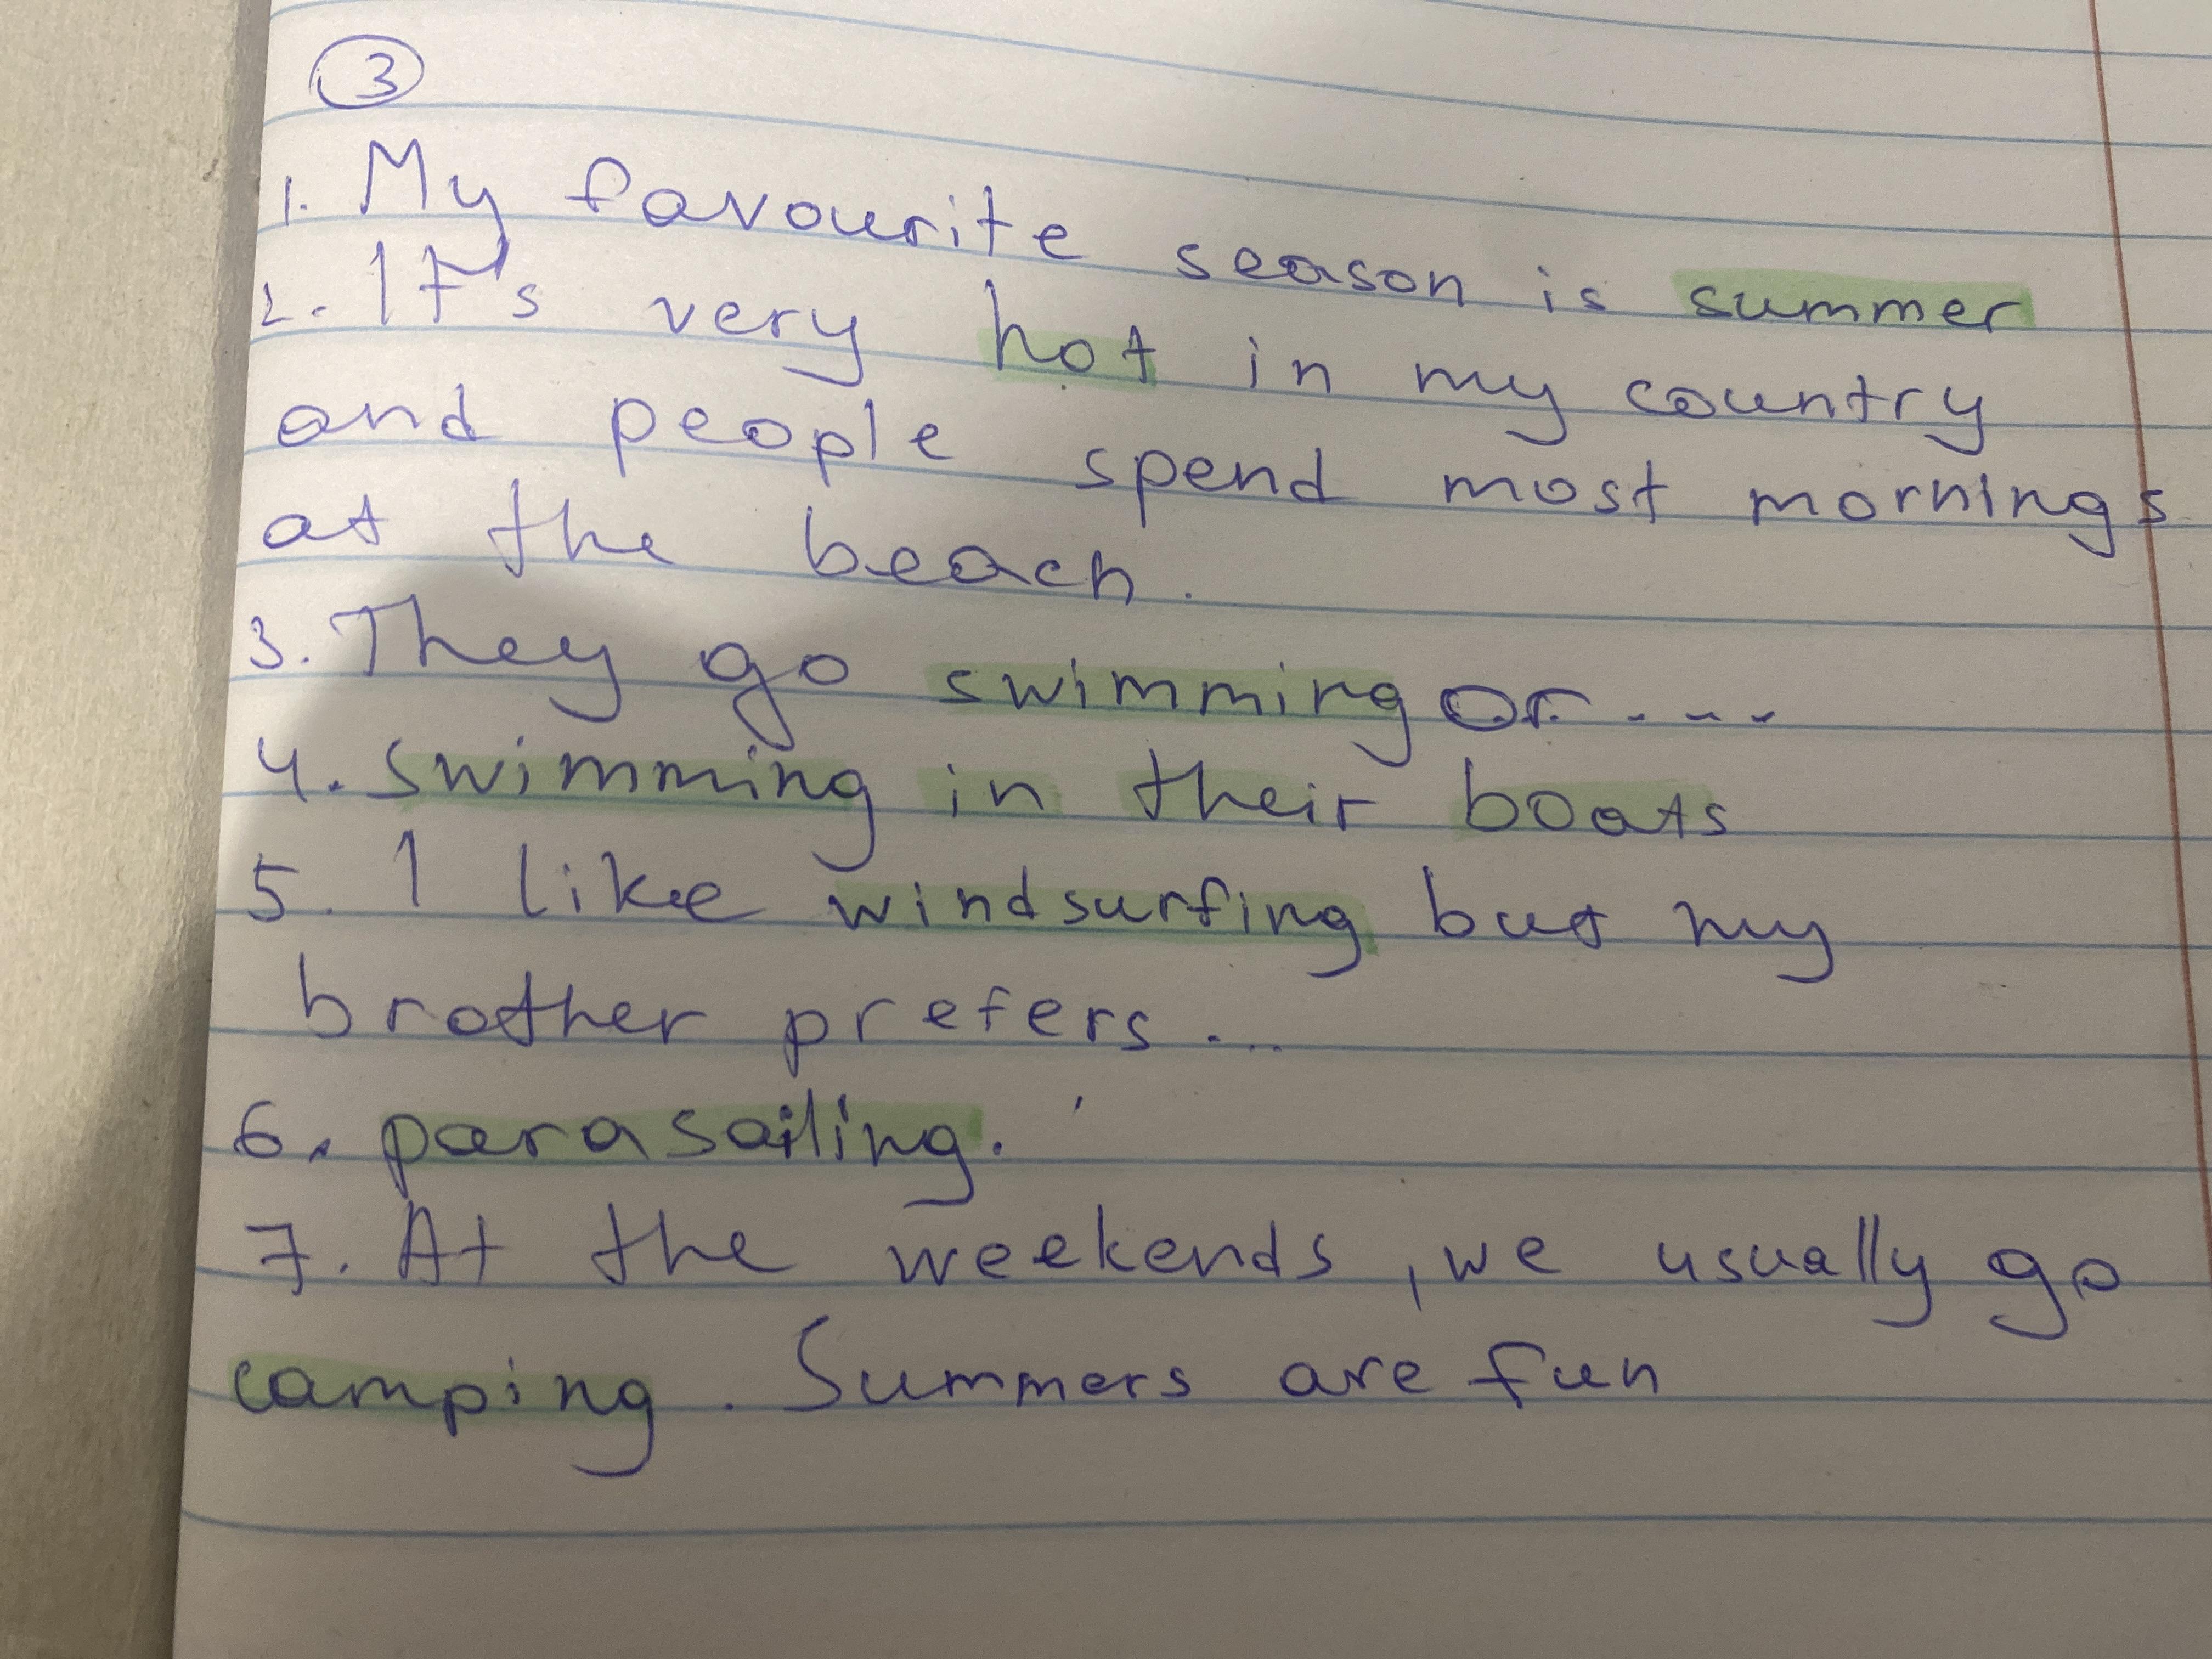 3
1. My favourite season is summer
2. It's very hot in my country
and people spend most mornings
at the beach.
3. They go swimming or ....
4. swimming in their boats
5. I like windsurfing but my
brother prefers ...
6. parasailing.
7. At the weekends, we usually go
camping. Summers are fun